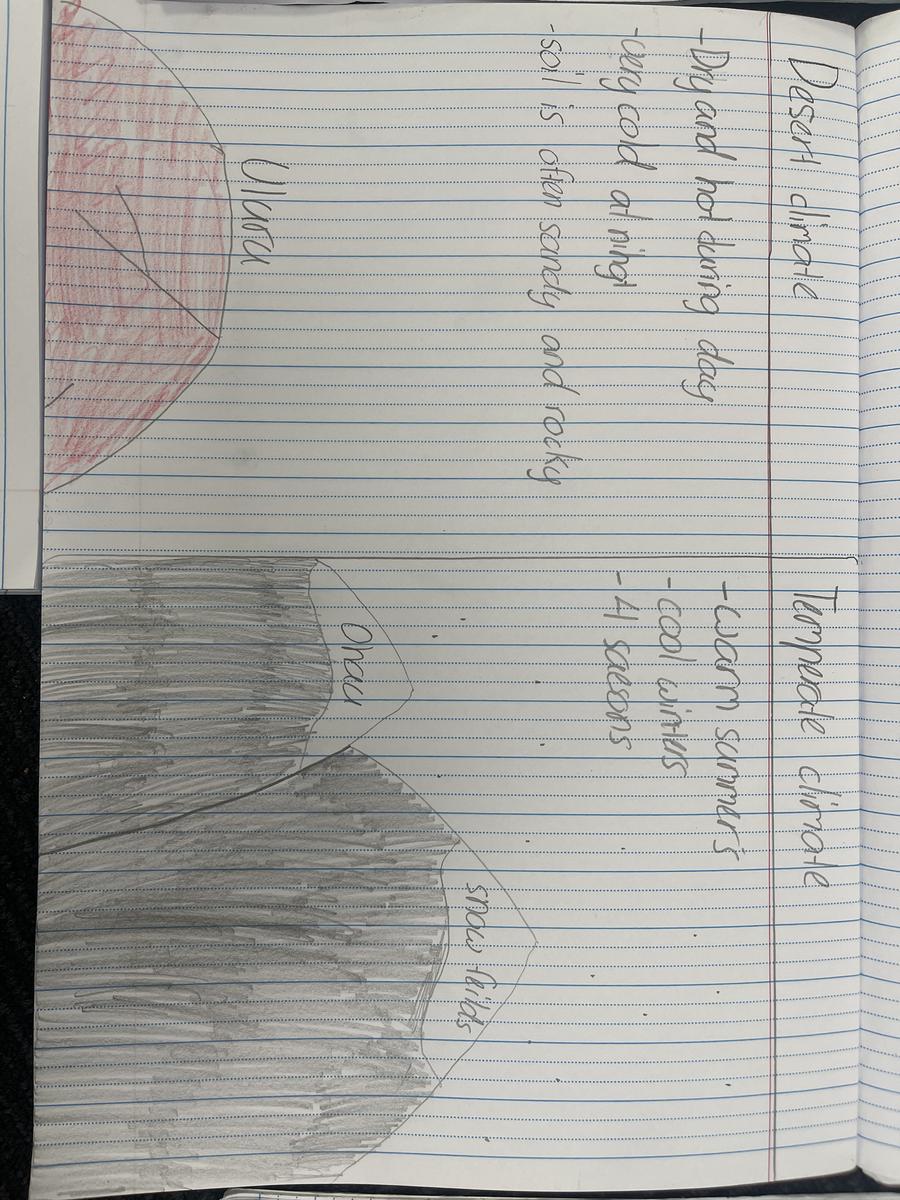 Desert climate
-Dry and hot during day
-very cold at nihgt
-soil is often sandy and rocky
Uluru
Temperate climate
-warm summer's
-cool winters
- 4 saesons
Ohau
snow feilds